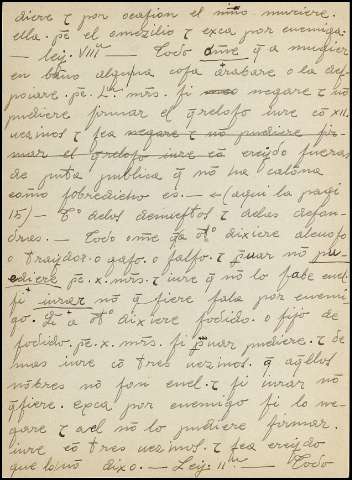 diere τ por ocasion el niño muriere.
ella. pē el omezilio τ exca por enemiga.
— ley. VIIIª — Todo ome q̄ a mugier
en baño alguna cosa arabare o la des-
pouare. pē. mrs. si negare τ nō
pudiere firmar el q̄reloso iure cō XII.
uezinos τ sea negare τ nō pudiere fir-
mar el q̄reloso iure cō creydo fueras
de publica q̄ nō ha calōna
como sobredicho es. — (aqui la pagi
15) — Tº delos denuestos τ delas deson-
dras. — Todo ome q̄ a dixiere aleuoso
o traydor. o gafo. o falso. τ ṗuar nō pu-
ediere pē. x. mrs. τ iure q̄ nō lo sabe enel.
si iurar nō q̄siere fala por enemi-
go. a dixiere fodido. o fijo de
fodido. pē. x. mrs. si ṗuar pudiere. τ de
mas iure cō tres uezinos. q̄ aq̄llos
nōbres nō son enel. τ si iurar nō
q̄siere. exca por enemigo si lo ne-
gare τ ael nō lo pudiere firmar.
iure cō tres uezinos. τ sea creydo
que lo nō dixo. — Ley. II — Todo